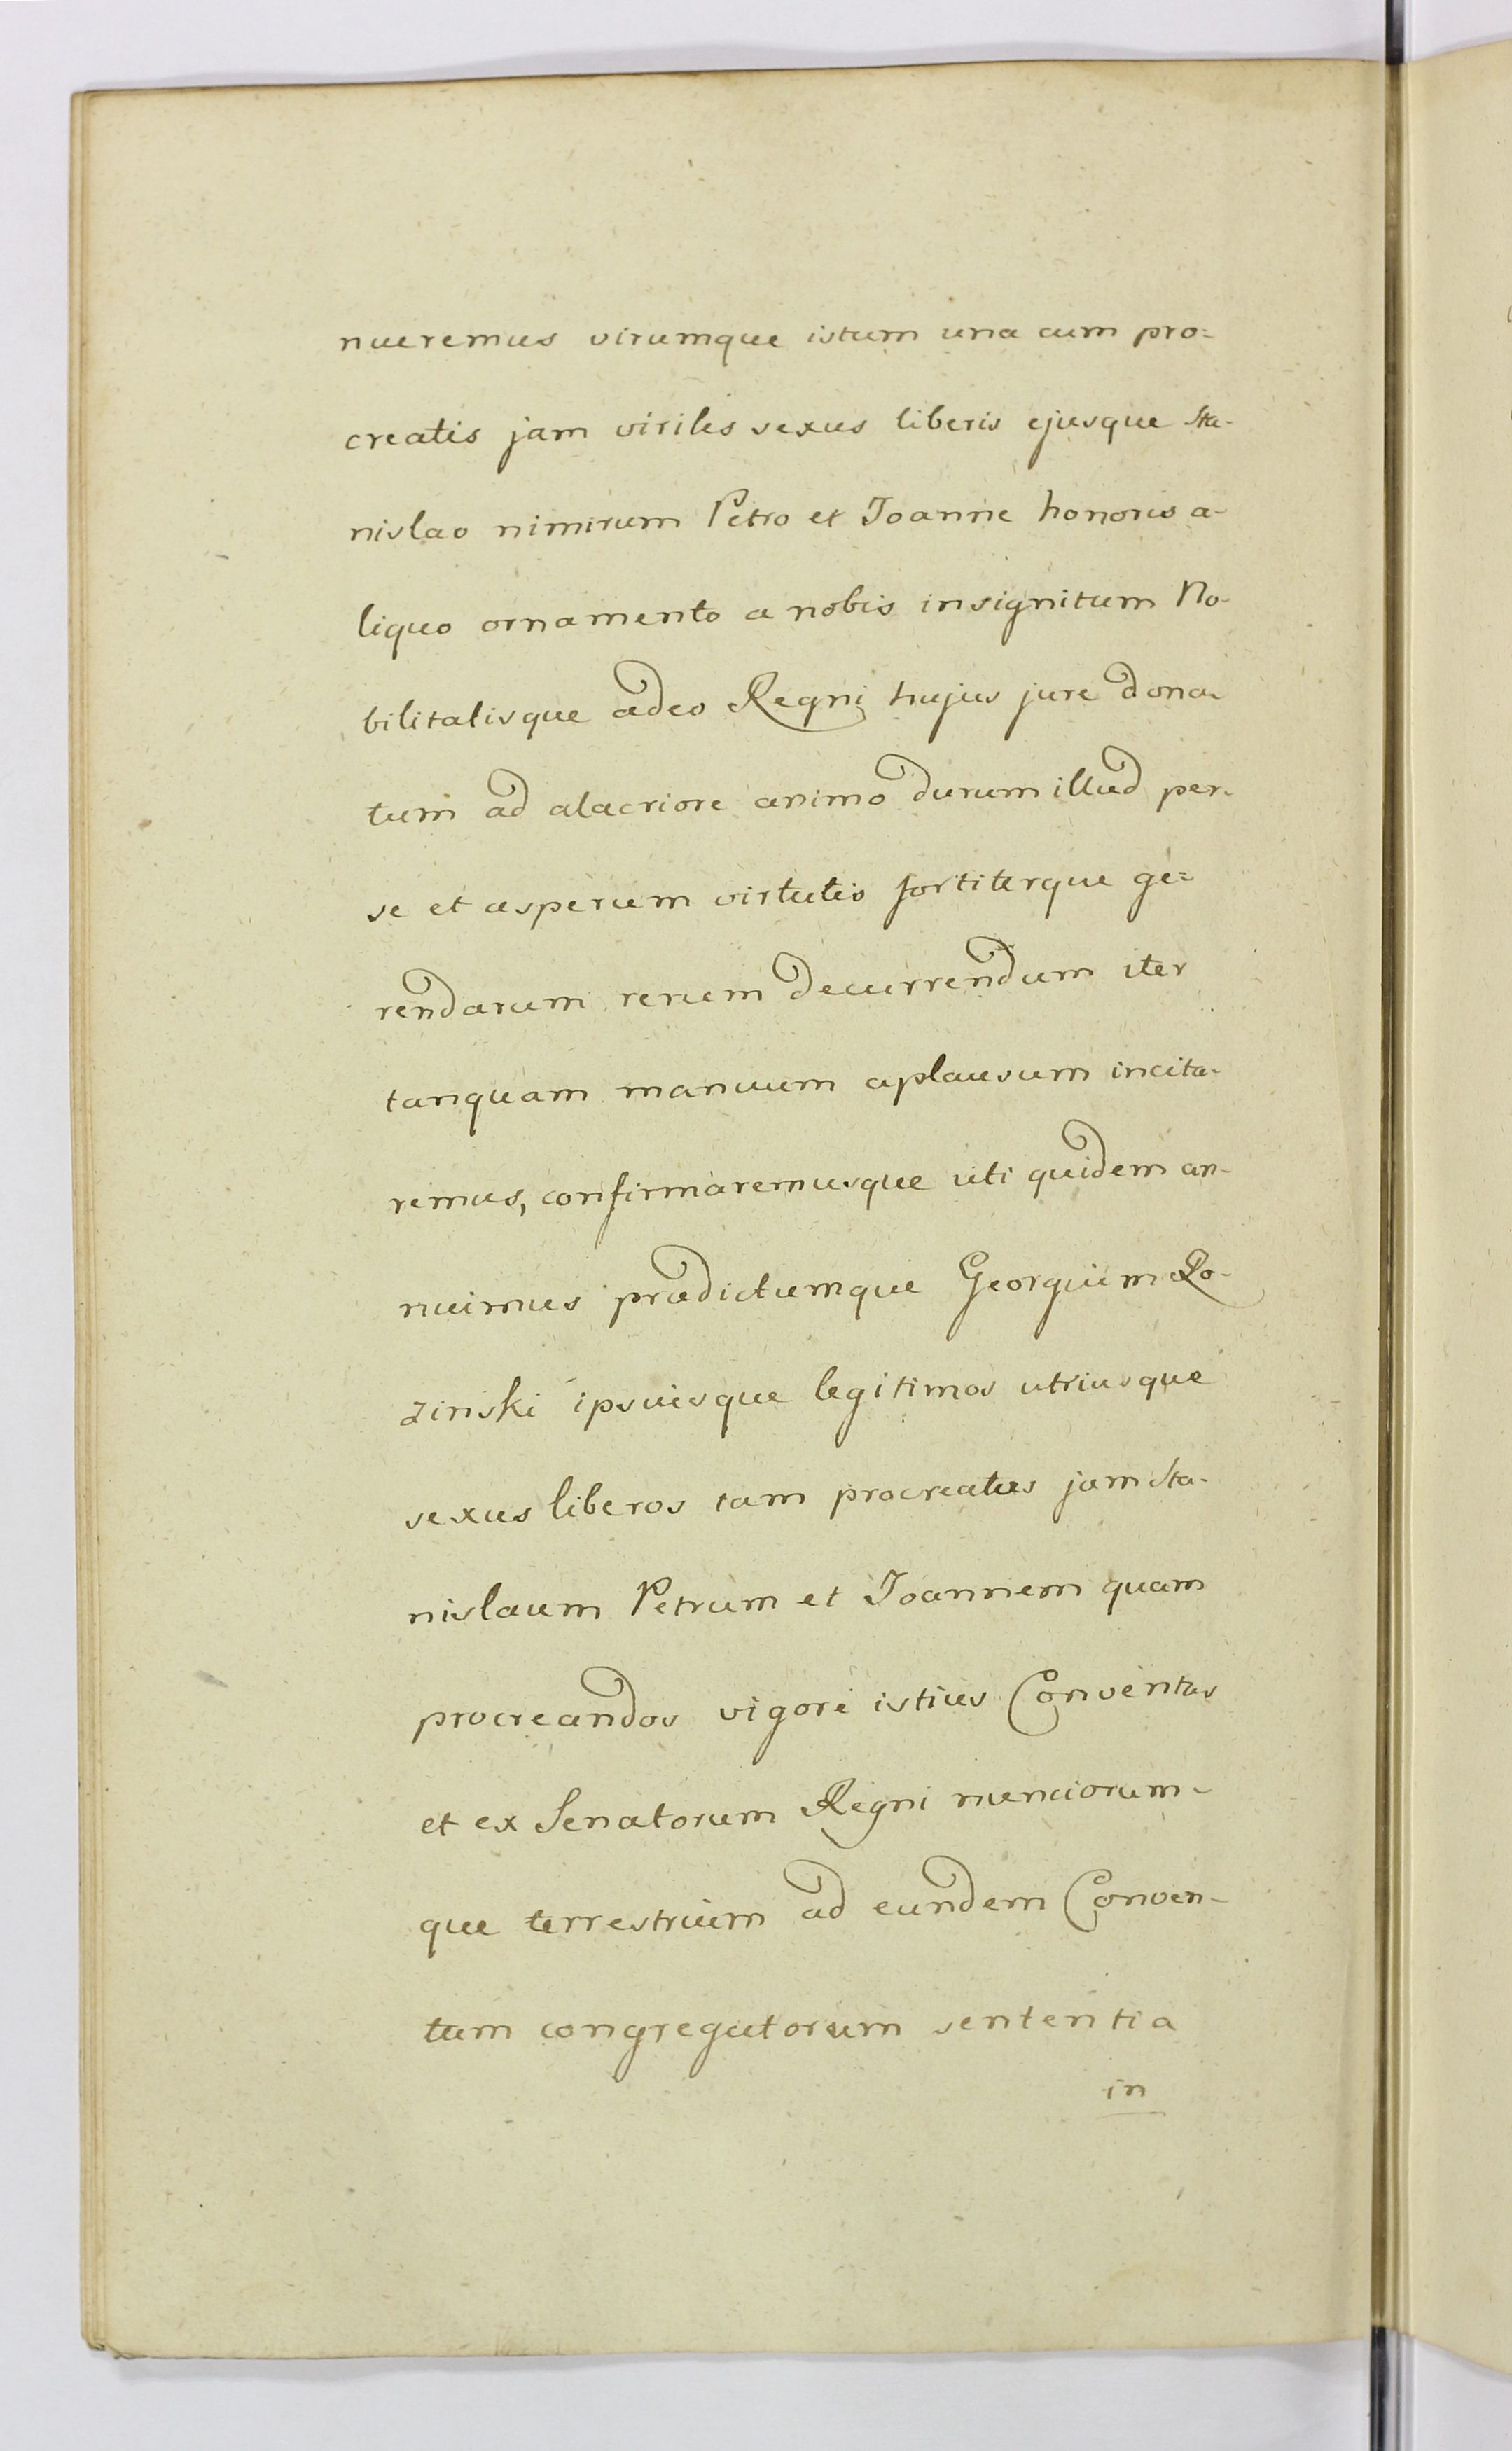 nueremus virumque istum una cum pro=
creatis jam virilis sexus liberis ejusque Sta-
nislao nimirum Petro et Joanne honoris a-
liquo ornamento a nobis insignitum No-
bilitatisque adeo Regni hujus jure dona-
tum ad alacriore animo durum illud per-
se et asperum virtutis fortiterque ge=
rendarum rerum decurrendum iter
tanquam manuum aplausum incita-
remus, confirmaremusque uti quidem an-
nuimus prædictumque Georgium Ro-
zinski ipsuisque legitimos utriusque
sexus liberos tam procreatus jam Sta-
nislaum Petrum et Joannem quam
procreandos vigore istius Conventus
et ex Senatorum Regni nunciorum-
que terrestrium ad eundem Conven-
tum congregatorum sententia
in